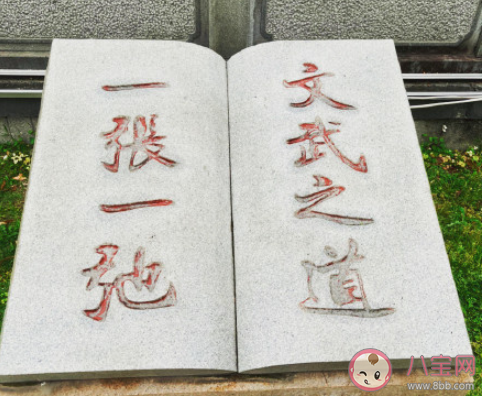 文武之道
一張一弛
八宝网
www.8bb.com